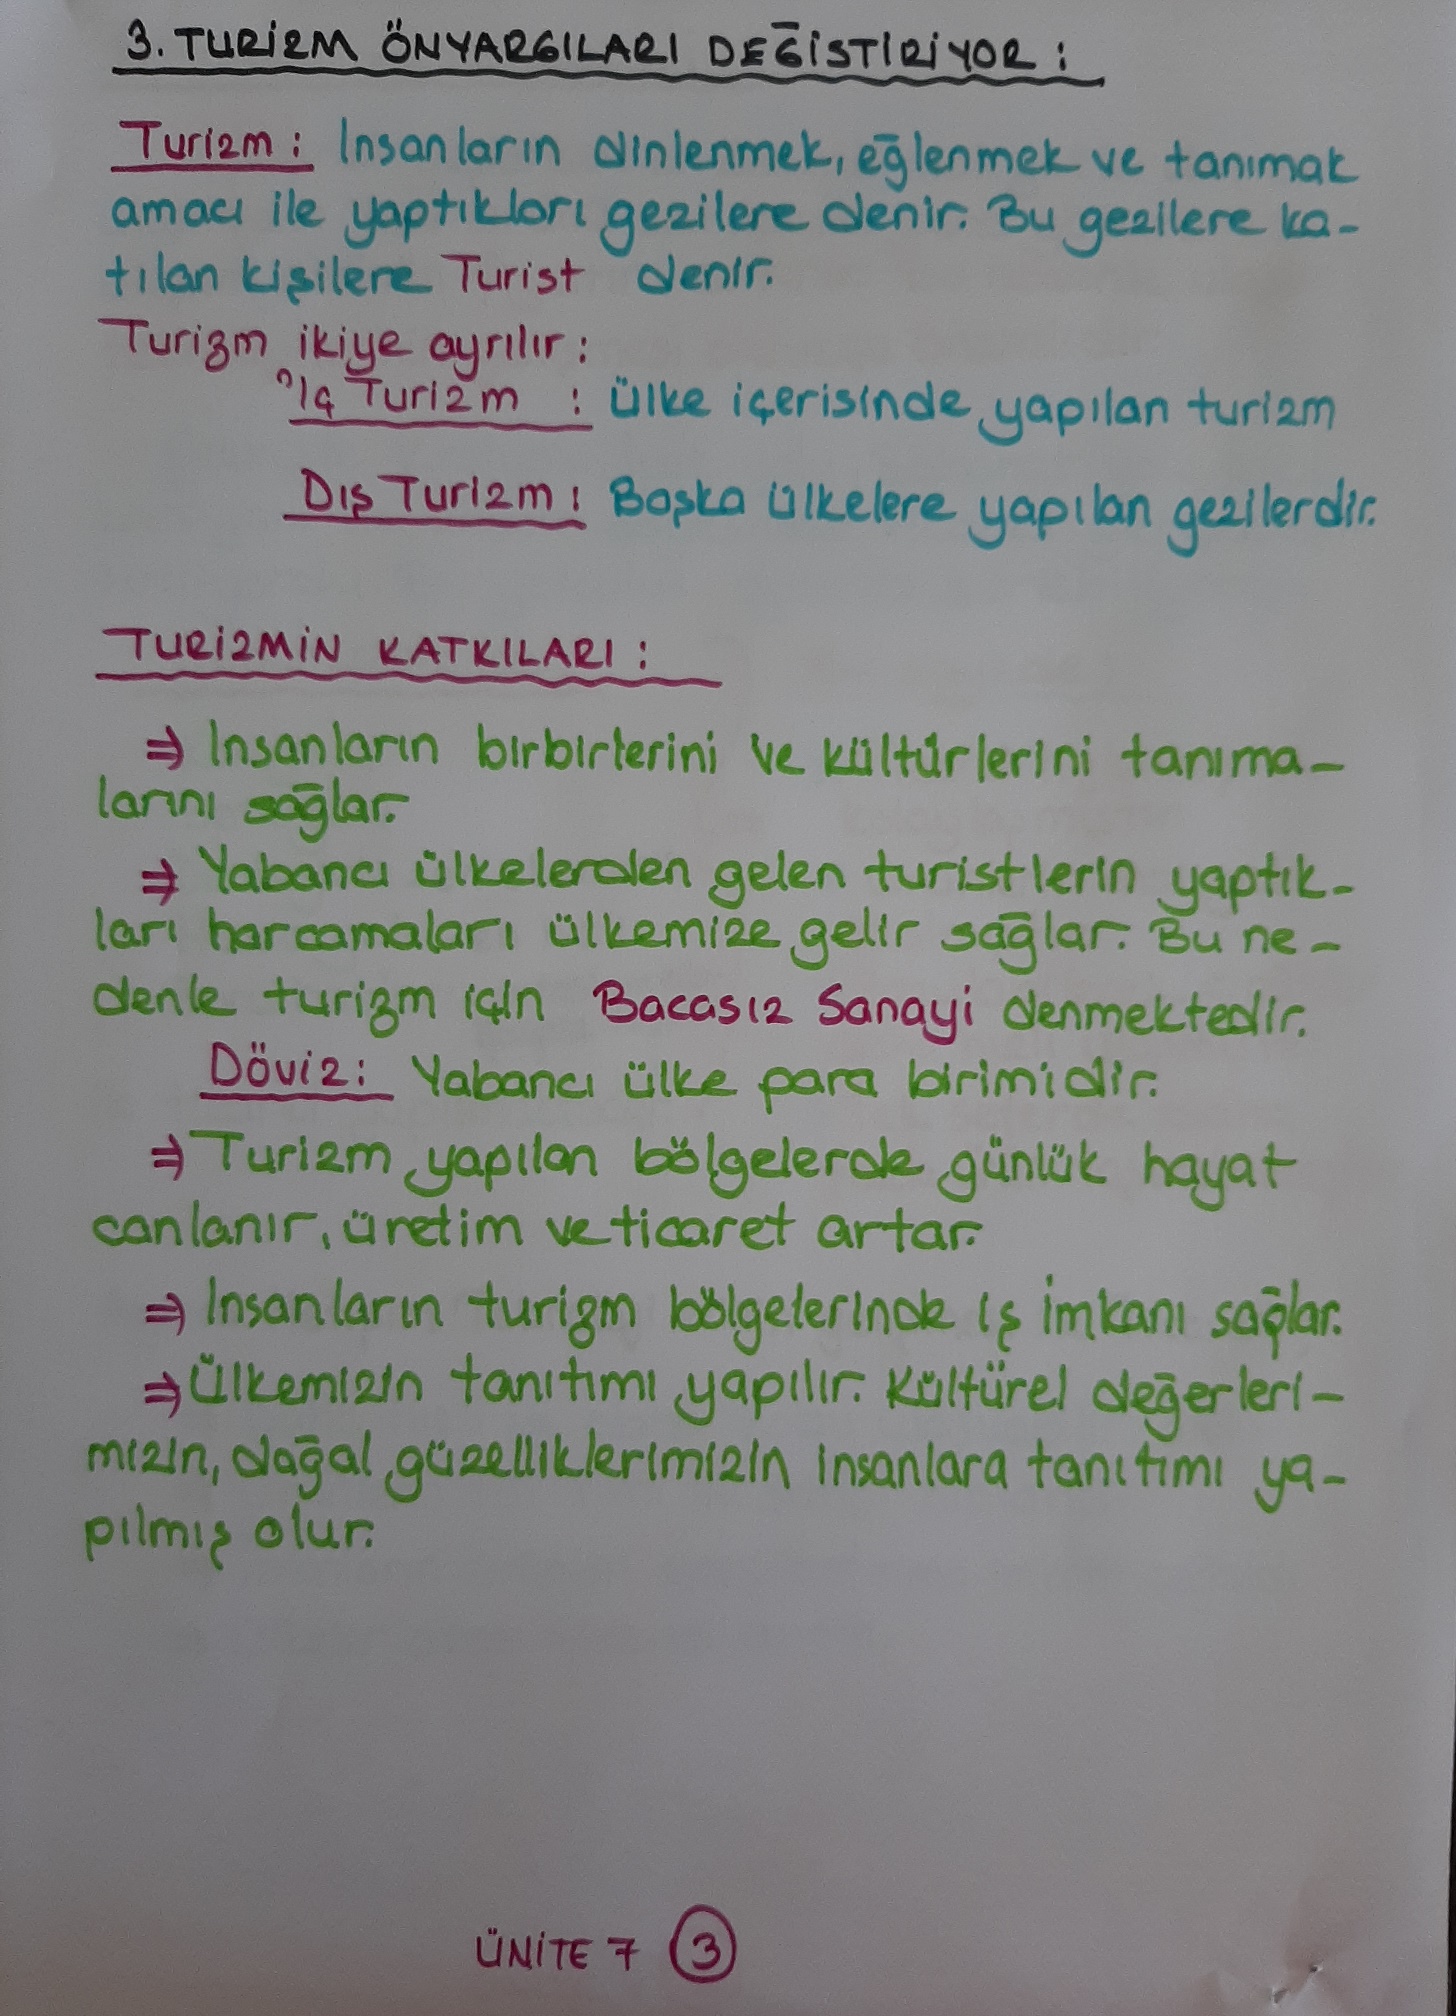 3. TURİZM ÖNYARGILARI DEĞİSTİRİYOR :
Turizm : İnsanların dinlenmek, eğlenmek ve tanımak
amacı ile yaptıkları gezilere denir. Bu gezilere ka-
tılan kişilere Turist denir.
Turizm ikiye ayrılır :
İç Turizm : ülke içerisinde yapılan turizm
Dış Turizm : Başka ülkelere yapılan gezilerdir.
TURİZMİN KATKILARI :
⇒ İnsanların birbirlerini ve kültürlerini tanıma-
larını sağlar.
⇒ Yabancı ülkelerden gelen turistlerin yaptık-
ları harcamaları ülkemize gelir sağlar. Bu ne-
denle turizm için Bacasız Sanayi denmektedir.
Döviz : Yabancı ülke para birimidir.
⇒ Turizm yapılan bölgelerde günlük hayat
canlanır, üretim ve ticaret artar.
⇒ İnsanların turizm bölgelerinde iş imkanı sağlar.
⇒ Ülkemizin tanıtımı yapılır. Kültürel değerleri-
mizin, doğal güzelliklerimizin insanlara tanıtımı ya-
pılmış olur.
ÜNİTE 7 3